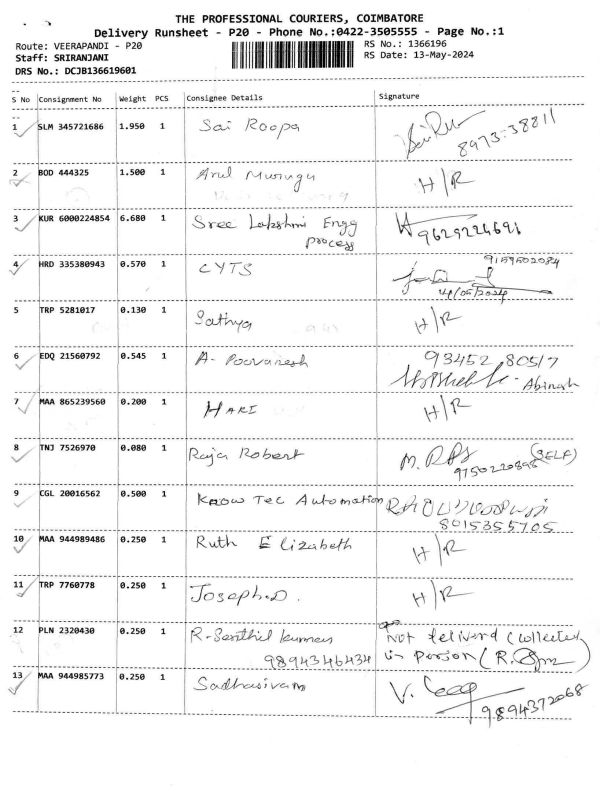 THE PROFESSIONAL COURIERS, COIMBATORE
Delivery Runsheet - P20 - Phone No.:0422-3505555 - Page No.:1
Route: VEERAPANDI - P20
RS No.: 1366196
Staff: SRIRANJANI
RS Date: 13-May-2024
DRS No.: DCJB136619601
S No Consignment No Weight PCS Consignee Details Signature
1 SLM 345721686 1.950 1 Sai Roopa
8973-38811
2 BOD 444325 1.500 1 Arul Murugu H/R
3 KUR 6000224854 6.680 1 Sree Lakshmi Engg
process
9629224691
4 HRD 335380943 0.570 1 CYTS 9159502084
5 TRP 5281017 0.130 1 Sathya H/R
6 EDQ 21560792 0.545 1 A- Poovanesh 93452 80517
Abinash
7 MAA 865239560 0.200 1 HARI H/R
8 TNJ 7526970 0.080 1 Raja Robert (SELF)
9750220896
9 CGL 20016562 0.500 1 Know Tec Automation
8015355705
10 MAA 944989486 0.250 1 Ruth Elizabeth H/R
11 TRP 7760778 0.250 1 Joseph.D. H/R
12 PLN 2320430 0.250 1 R-Senthil kumar Not delivered (collected
9894346434 in person (R.
13 MAA 944985773 0.250 1 Sadhasivam V.
9894372068